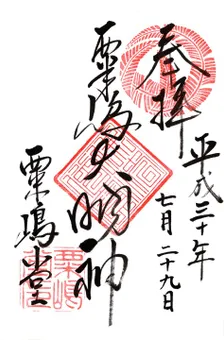 奉拝
平成三十年
七月二十九日
粟嶋大明神
粟嶋堂